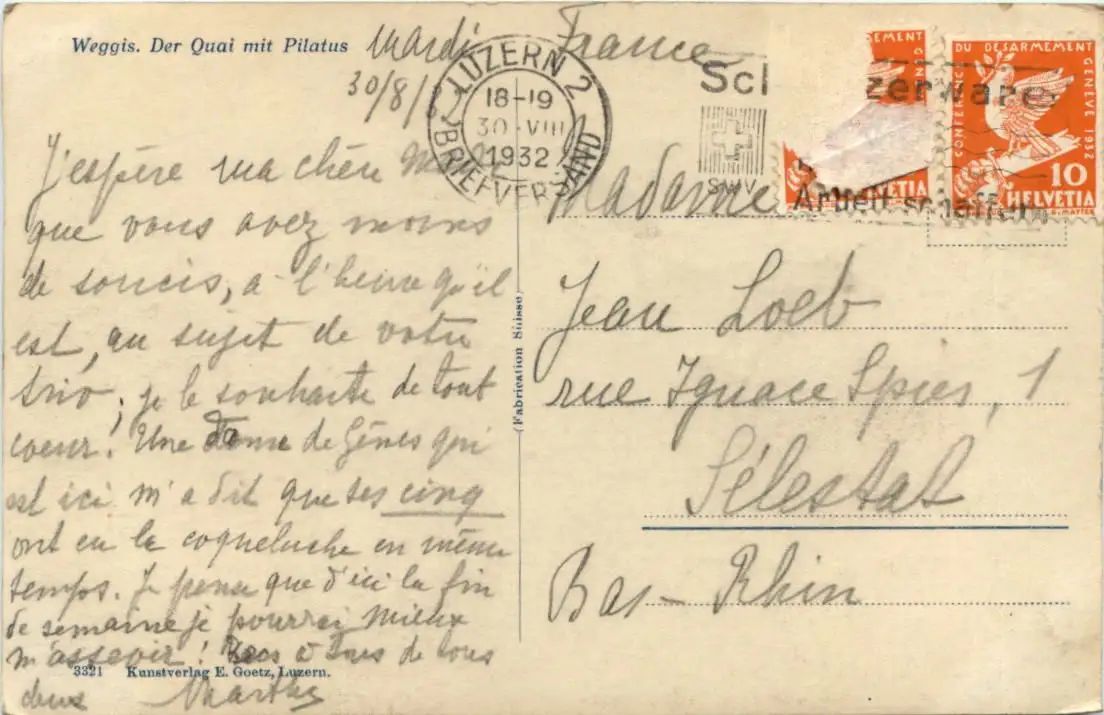 Weggis. Der Quai mit Pilatus
Mardi
30/8/
France
LUZERN 2
18-19
30·VIII
1932
BRIEFVERSAND
Sch zerware
SWV
Arbeit schaffen
EMENT
VETIA
CONFERENCE DU DÉSARMEMENT GENÈVE 1932
10
HELVETIA
J'espère ma chère
que vous avez moins
de soucis, à l'heure qu'il
est, au sujet de votre
trio; je le souhaite de tout
coeur! Une Dame de Gênes qui
est ici m'a dit que ses cinq
ont eu la coqueluche en même
temps. Je pense que d'ici la fin
de semaine je pourrai mieux
m'asseoir! à de tous
deux Marthe
3321 Kunstverlag E. Goetz, Luzern.
(Fabrication Suisse)
Madame
Jean Loeb
rue Ignace Spies, 1
Sélestat
Bas-Rhin